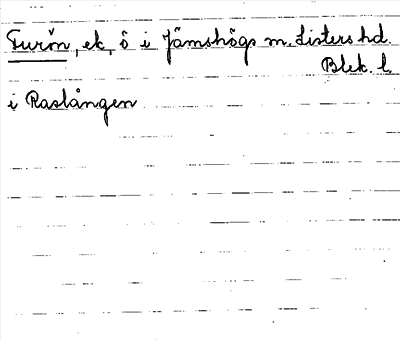 Furön, ek, ö i Jämshögs m. Listers hd.
Blek. l.
i Raslången